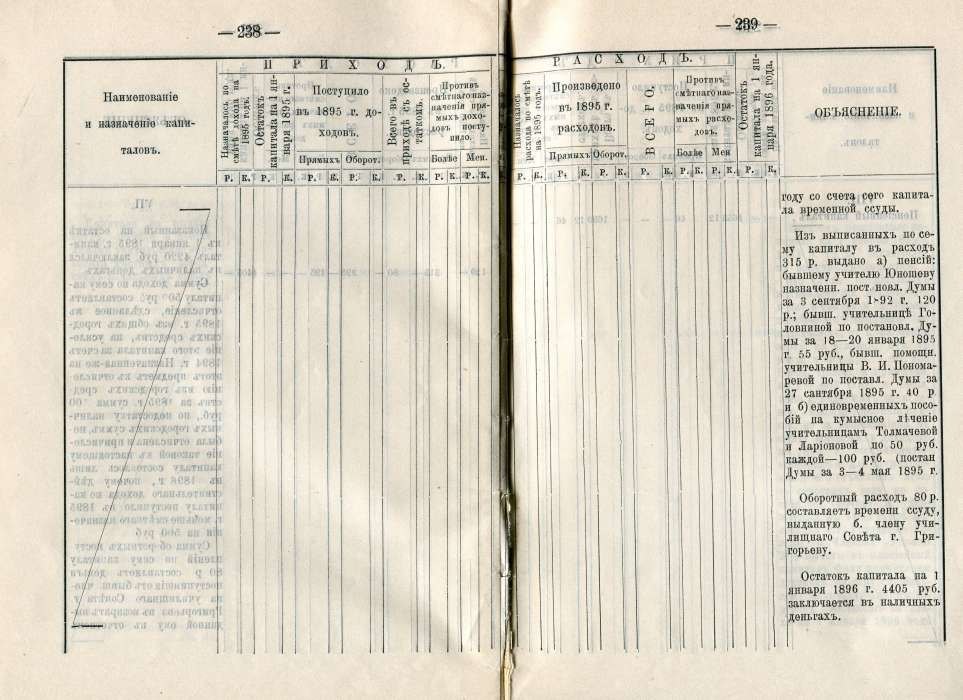 — 238 —
Наименованіе
и назначеніе капи-
таловъ.
ПРИХОДЪ.
Назначалось по
смѣтѣ дохода на
1895 годъ.
Остатокъ
капитала на 1 ян-
варя 1895 г.
Поступило
въ 1895 г. до-
ходовъ.
Прямыхъ
Оборот.
Всего въ
приходѣ съ ос-
таткомъ.
Противъ
смѣтнаго наз-
наченія пря-
мыхъ дохо-
довъ посту-
пило.
Болѣе
Мен.
Р. К. Р. К. Р. К. Р. К. Р. К. Р. К. Р. К.
— 239 —
РАСХОДЪ.
Назначалось
расхода по смѣтѣ
на 1895 годъ.
Произведено
въ 1895 г.
расходовъ.
Прямыхъ
Оборот.
ВСЕГО.
Противъ
смѣтнаго наз-
наченія пря-
мыхъ расхо-
довъ.
Болѣе
Мен
Остатокъ
капитала на 1 ян-
варя 1896 года.
ОБЪЯСНЕНІЕ.
Р. К. Р. К. Р. К. Р. К. Р. К. Р. К. Р. К.
году со счета сего капита-
ла временной ссуды.
Изъ выписанныхъ по се-
му капиталу въ расходъ
315 р. выдано а) пенсій:
бывшему учителю Юношеву
назначенн. пост новл. Думы
за 3 сентября 1892 г. 120
р.; бывш. учительницѣ Го-
ловниной по постановл. Ду-
мы за 18—20 января 1895
г. 55 руб., бывш. помощн.
учительницы В. И. Понома-
ревой по поставл. Думы за
27 сантября 1895 г. 40 р
и б) единовременныхъ посо-
бій на кумысное лѣченіе
учительницамъ Толмачевой
и Ларіоновой по 50 руб.
каждой—100 руб. (постан
Думы за 3—4 мая 1895 г.
Оборотный расходъ 80 р.
составляетъ времени ссуду,
выданную б. члену учи-
лищнаго Совѣта г. Гри-
горьеву.
Остатокъ капитала на 1
января 1896 г. 4405 руб.
заключается въ наличныхъ
деньгахъ.